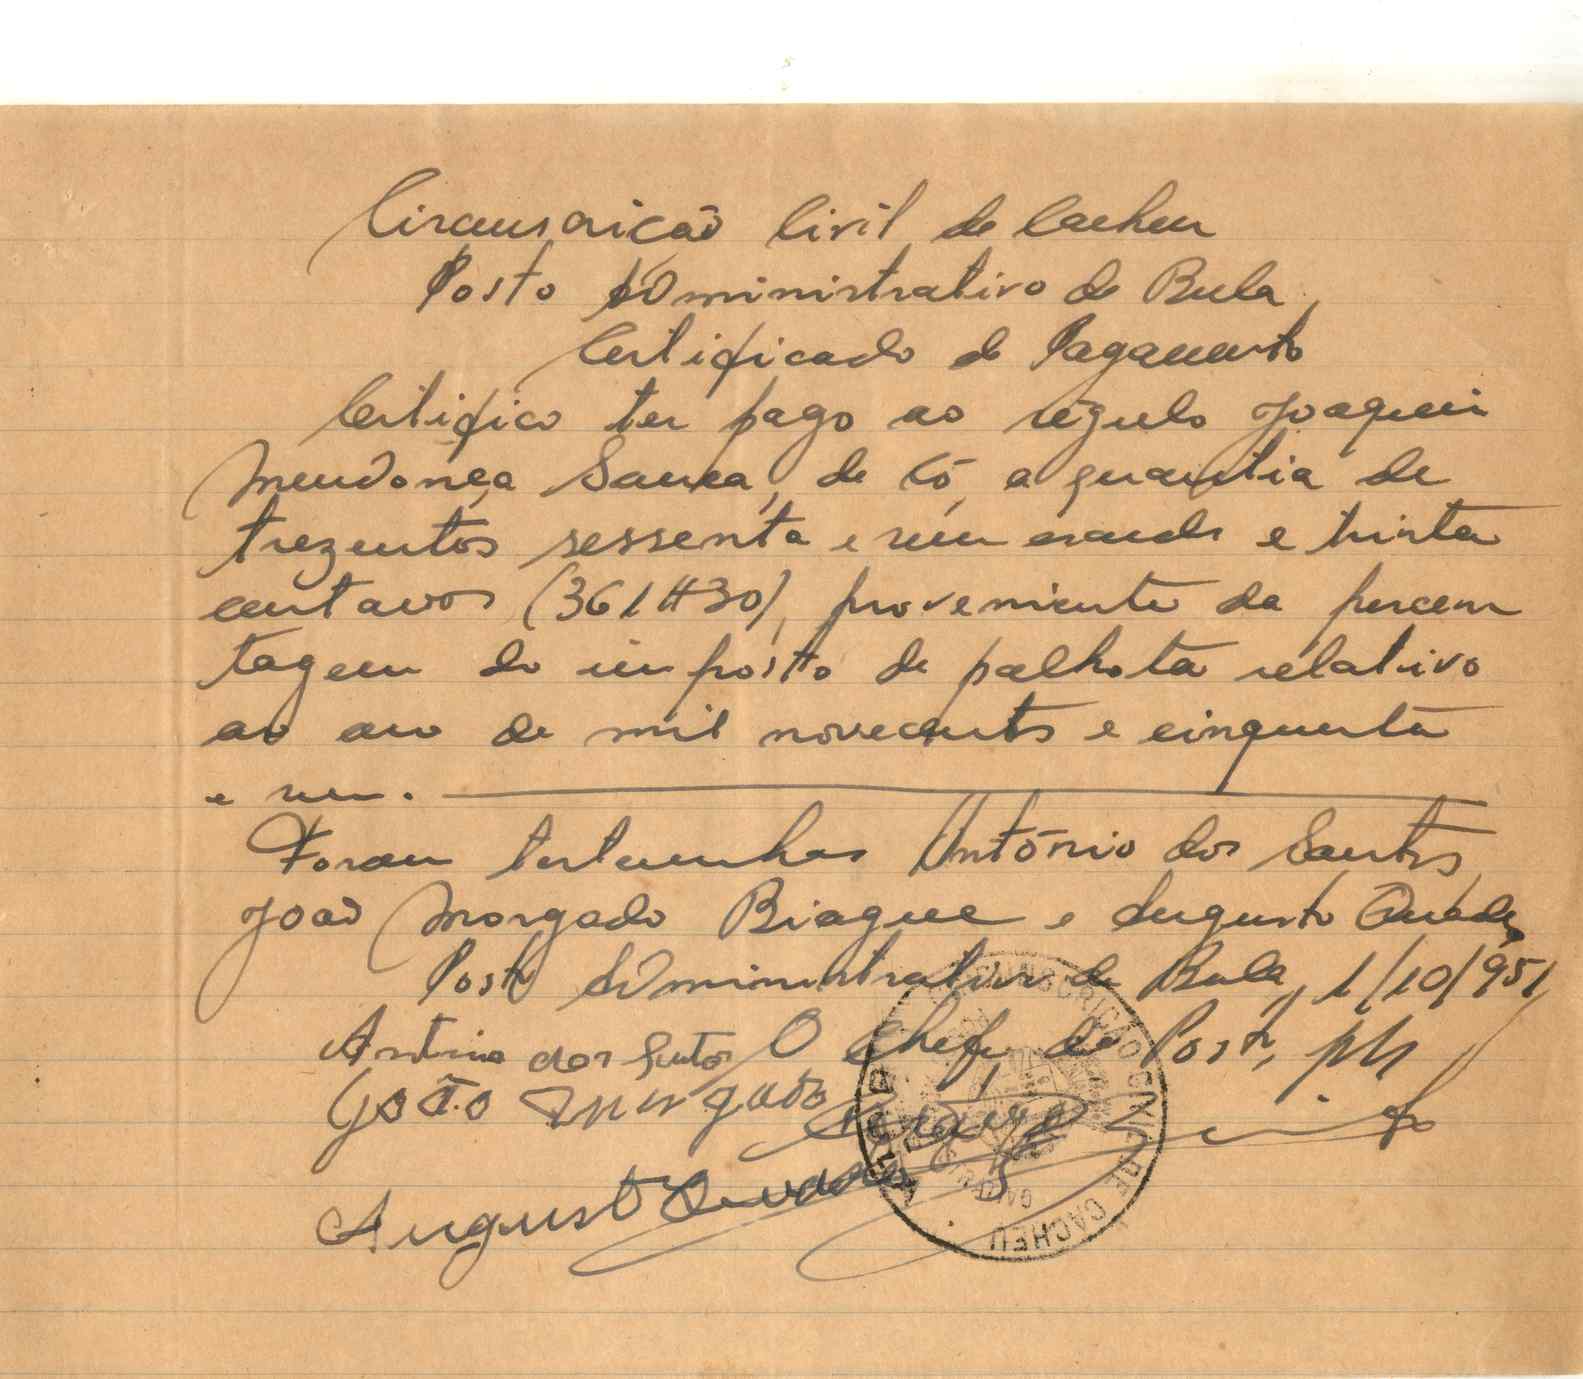 Circunscrição Civil de Cacheu
Posto Administrativo de Bula
Certificado de Pagamento
Certifico ter pago ao régulo Joaquim
Mendonça Sanca, de Có, a quantia de
trezentos sessenta e um escudos e trinta
centavos (361$30), proveniente da percen
tagem do imposto de palhota relativo
ao ano de mil novecentos e cinquenta
e um.
Foram testemunhas António dos Santos,
João Morgado Biague e Augusto
Posto Administrativo de Bula, 1/10/951
António dos Santos O Chefe do Posto,
João Morgado
Augusto
CIRCUNSCRIÇÃO CIVIL DE CACHEU